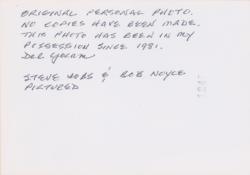 ORIGINAL PERSONAL PHOTO.
NO COPIES HAVE BEEN MADE.
THIS PHOTO HAS BEEN IN MY
POSESSION SINCE 1981.
Del Yocam
STEVE JOBS & BOB NOYCE
PICTURED